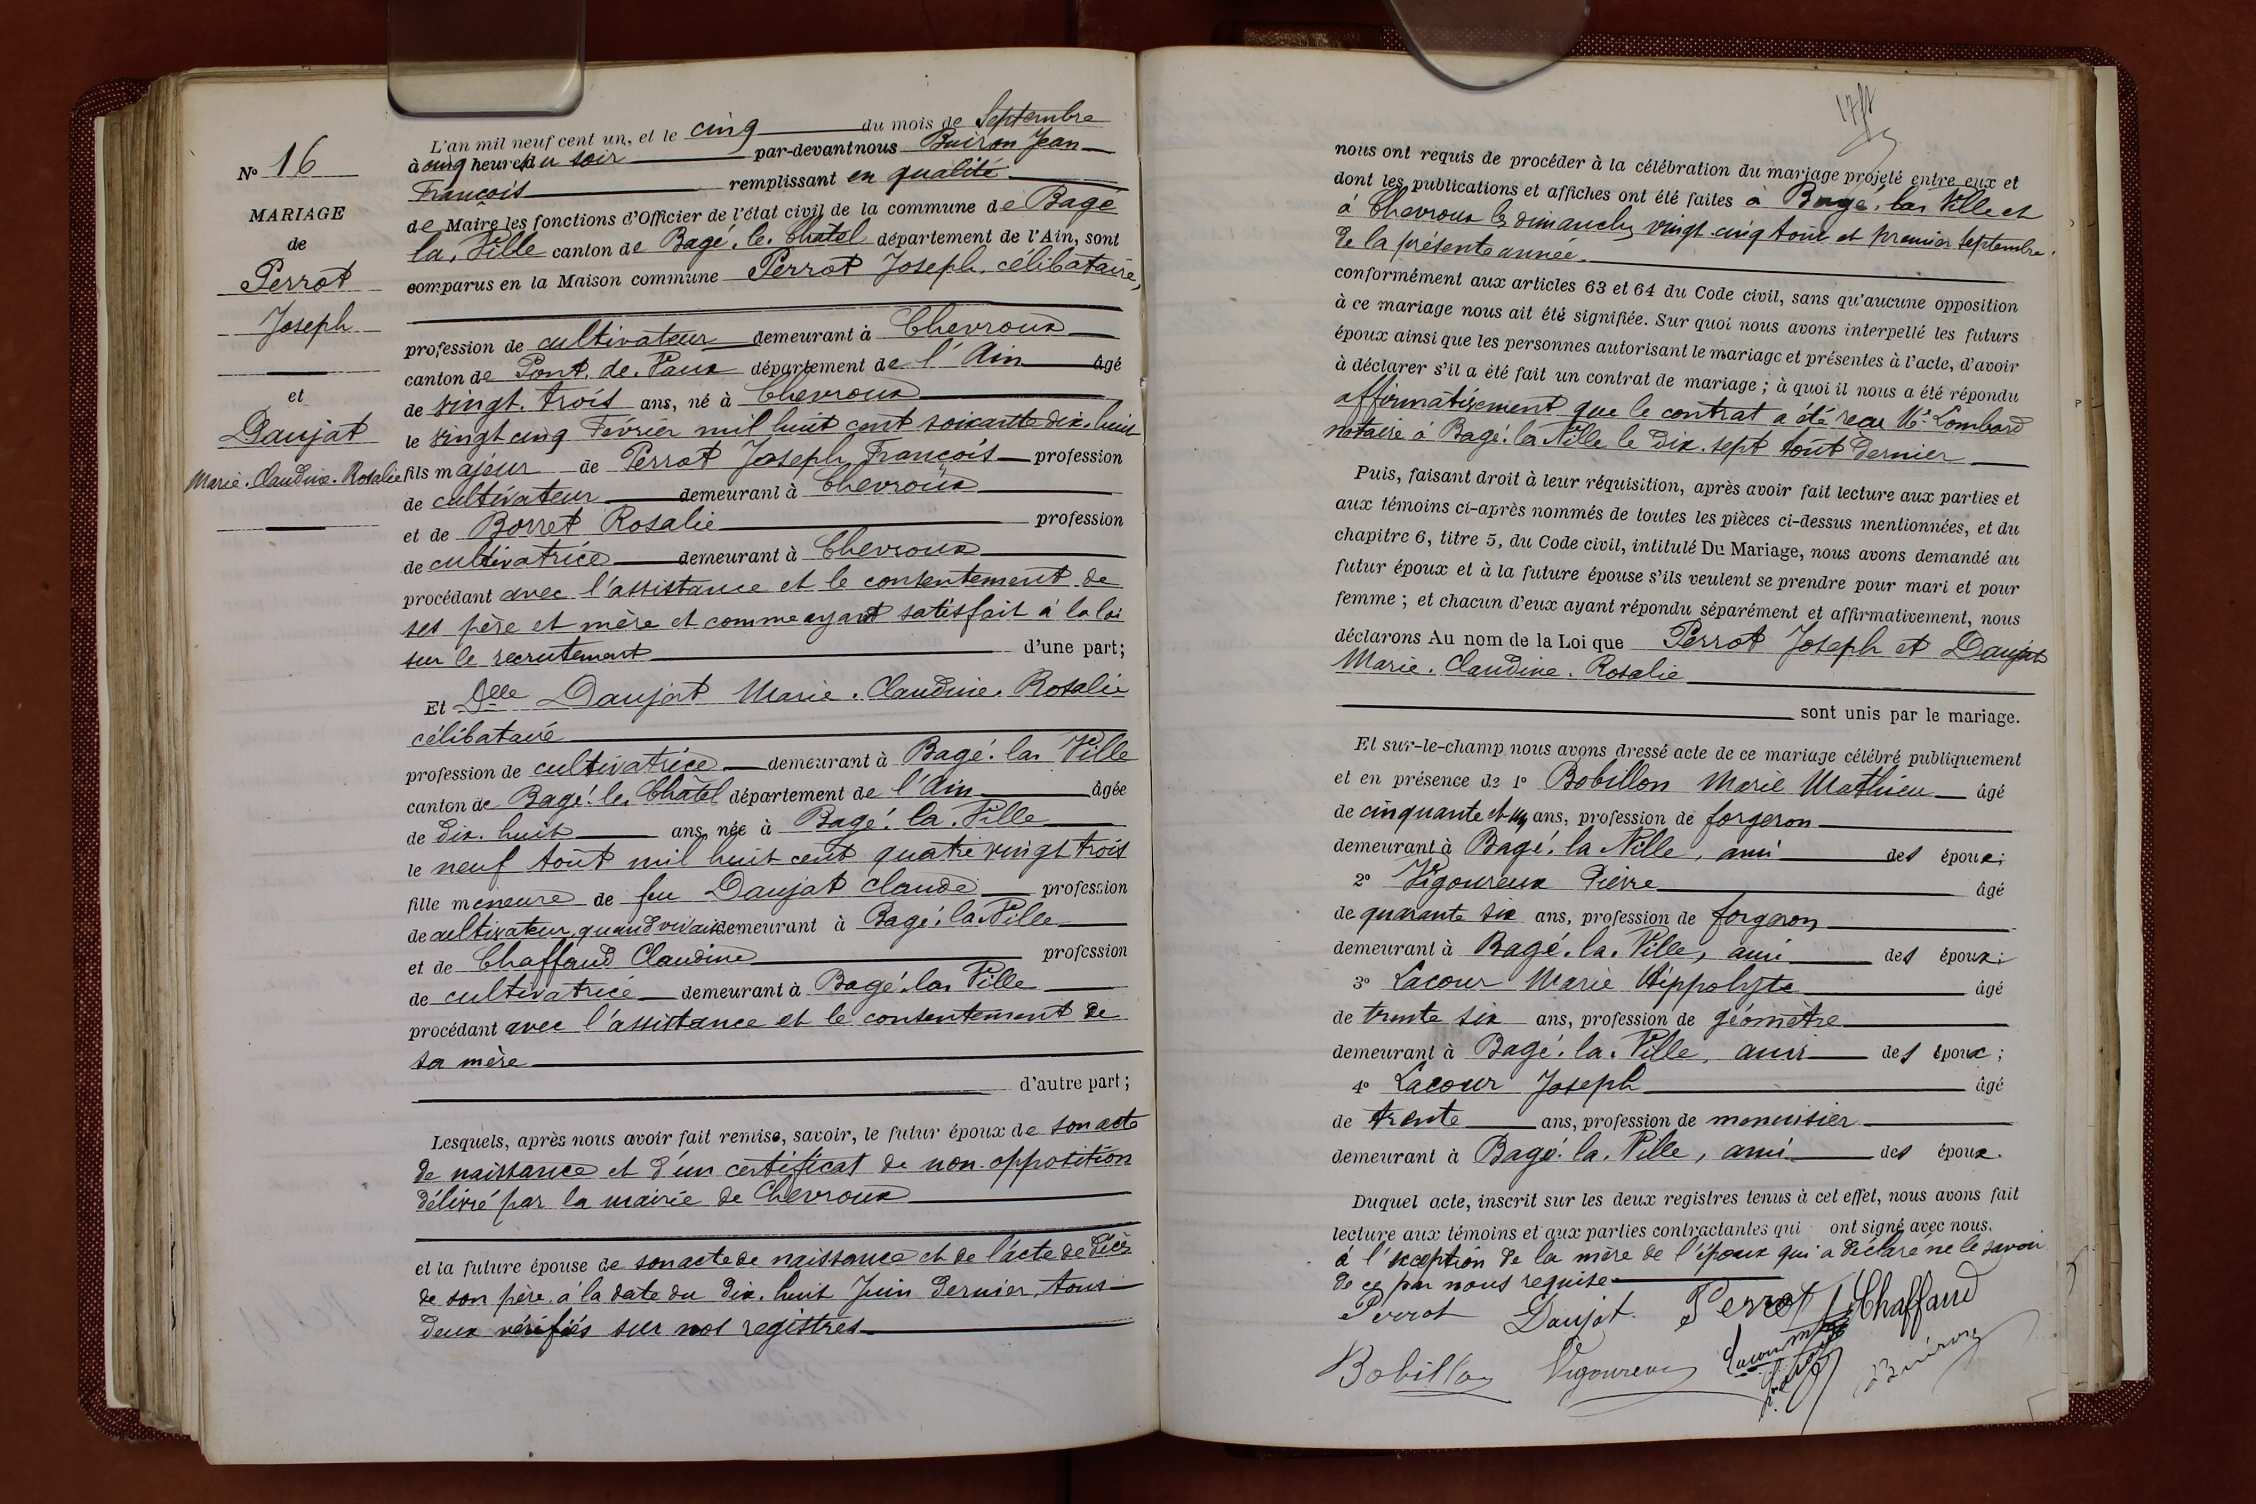 N° 16
MARIAGE
de
Perrot
Joseph
et
Daujat
Marie. Claudine. Rosalie
L'an mil neuf cent un, et le cinq du mois de Septembre
à cinq heures du soir par-devant nous Buiron Jean
François remplissant en qualité
de Maire les fonctions d'Officier de l'état civil de la commune de Bagé
la. Ville canton de Bagé. le. Chatel département de l'Ain, sont
comparus en la Maison commune Perrot Joseph, célibataire,
profession de cultivateur demeurant à Chevroux
canton de Pont. de. Vaux département de l'Ain âgé
de vingt. trois ans, né à Chevroux
le vingt cinq Février mil huit cent soixante dix. huit
fils majeur de Perrot Joseph François profession
de cultivateur demeurant à Chevroux
et de Borret Rosalie profession
de cultivatrice demeurant à Chevroux
procédant avec l'assistance et le consentement de
ses père et mère et comme ayant satisfait à la loi
sur le recrutement d'une part;
Et Dlle Daujat Marie. Claudine. Rosalie
célibataire
profession de cultivatrice demeurant à Bagé. la. Ville
canton de Bagé. le. Châtel département de l'Ain âgée
de dix. huit ans, née à Bagé. la. Ville
le neuf Août mil huit cent quatre vingt trois
fille mineure de feu Daujat Claude profession
de cultivateur, quand vivait demeurant à Bagé. la. Ville
et de Chaffaud Claudine profession
de cultivatrice demeurant à Bagé. la. Ville
procédant avec l'assistance et le consentement de
sa mère
d'autre part;
Lesquels, après nous avoir fait remise, savoir, le futur époux de son acte
de naissance et d'un certificat de non. opposition
délivré par la mairie de Chevroux
et la future épouse de son acte de naissance et de l'acte de décès
de son père, à la date du dix. huit Juin dernier, tous
deux vérifiés sur nos registres
nous ont requis de procéder à la célébration du mariage projeté entre eux et
dont les publications et affiches ont été faites à Bagé. la. Ville et
à Chevroux les dimanches vingt. cinq Août et premier Septembre
de la présente année.
conformément aux articles 63 et 64 du Code civil, sans qu'aucune opposition
à ce mariage nous ait été signifiée. Sur quoi nous avons interpellé les futurs
époux ainsi que les personnes autorisant le mariage et présentes à l'acte, d'avoir
à déclarer s'il a été fait un contrat de mariage; à quoi il nous a été répondu
affirmativement que le contrat a été reçu Me Lombard
notaire à Bagé. la Ville le dix. sept Août dernier
Puis, faisant droit à leur réquisition, après avoir fait lecture aux parties et
aux témoins ci-après nommés de toutes les pièces ci-dessus mentionnées, et du
chapitre 6, titre 5, du Code civil, intitulé Du Mariage, nous avons demandé au
futur époux et à la future épouse s'ils veulent se prendre pour mari et pour
femme; et chacun d'eux ayant répondu séparément et affirmativement, nous
déclarons Au nom de la Loi que Perrot Joseph et Daujat
Marie. Claudine. Rosalie
sont unis par le mariage.
Et sur-le-champ nous avons dressé acte de ce mariage célébré publiquement
et en présence de 1° Bobillon Marie Mathieu âgé
de cinquante et un ans, profession de forgeron
demeurant à Bagé. la Ville, ami des époux;
2° Vigoureux Pierre âgé
de quarante six ans, profession de forgeron
demeurant à Bagé. la. Ville, ami des époux;
3° Lacour Marie Hippolyte âgé
de trente six ans, profession de géomètre
demeurant à Bagé. la. Ville, ami des époux;
4° Lacour Joseph âgé
de trente ans, profession de menuisier
demeurant à Bagé. la. Ville, ami des époux.
Duquel acte, inscrit sur les deux registres tenus à cet effet, nous avons fait
lecture aux témoins et aux parties contractantes qui ont signé avec nous.
à l'exception de la mère de l'époux qui a déclaré ne le savoir
de ce par nous requise
Perrot Daujat. Perrot Chaffaud
Bobillon Vigoureux Lacour Buiron